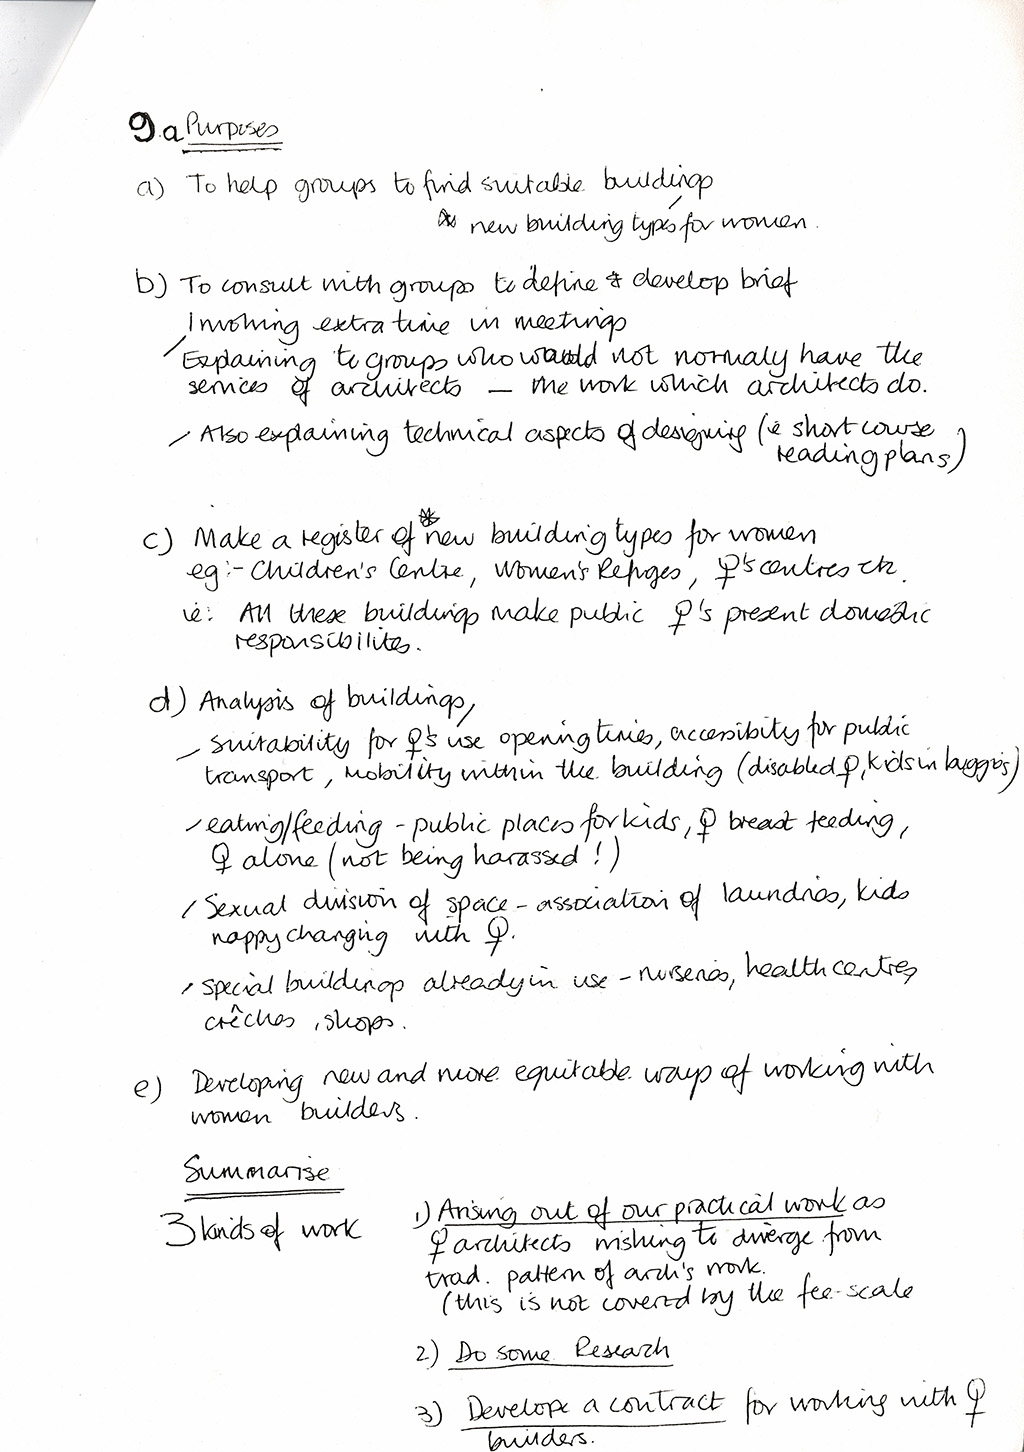 9.a Purposes
a) To help groups to find suitable buildings
* new building types for women.
b) To consult with groups to define & develop brief
Involving extra time in meetings
/ Explaining to groups who would not normaly have the
services of architects — the work which architects do.
/ Also explaining technical aspects of designing (ie short course
reading plans)
c) Make a register of *new building types for women
eg:- Children's Centre, Women's Refuges, ♀'s centres etc.
ie: All these buildings make public ♀'s present domestic
responsibilites.
d) Analysis of buildings,
/ suitability for ♀'s use opening times, accessibity for public
transport, mobility within the building (disabled ♀, kids in buggies)
/ eating/feeding - public places for kids, ♀ breast feeding,
♀ alone (not being harassed!)
/ Sexual division of space - association of laundries, kids
nappy changing with ♀.
/ special buildings already in use - nurseries, health centres,
crêches, shops.
e) Developing new and more equitable ways of working with
women builders.
Summarise
3 kinds of work
1) Arising out of our practical work as
♀ architects wishing to diverge from
trad. pattern of arch's work.
(this is not covered by the fee-scale
2) Do some Research
3) Develope a contract for working with ♀
builders.